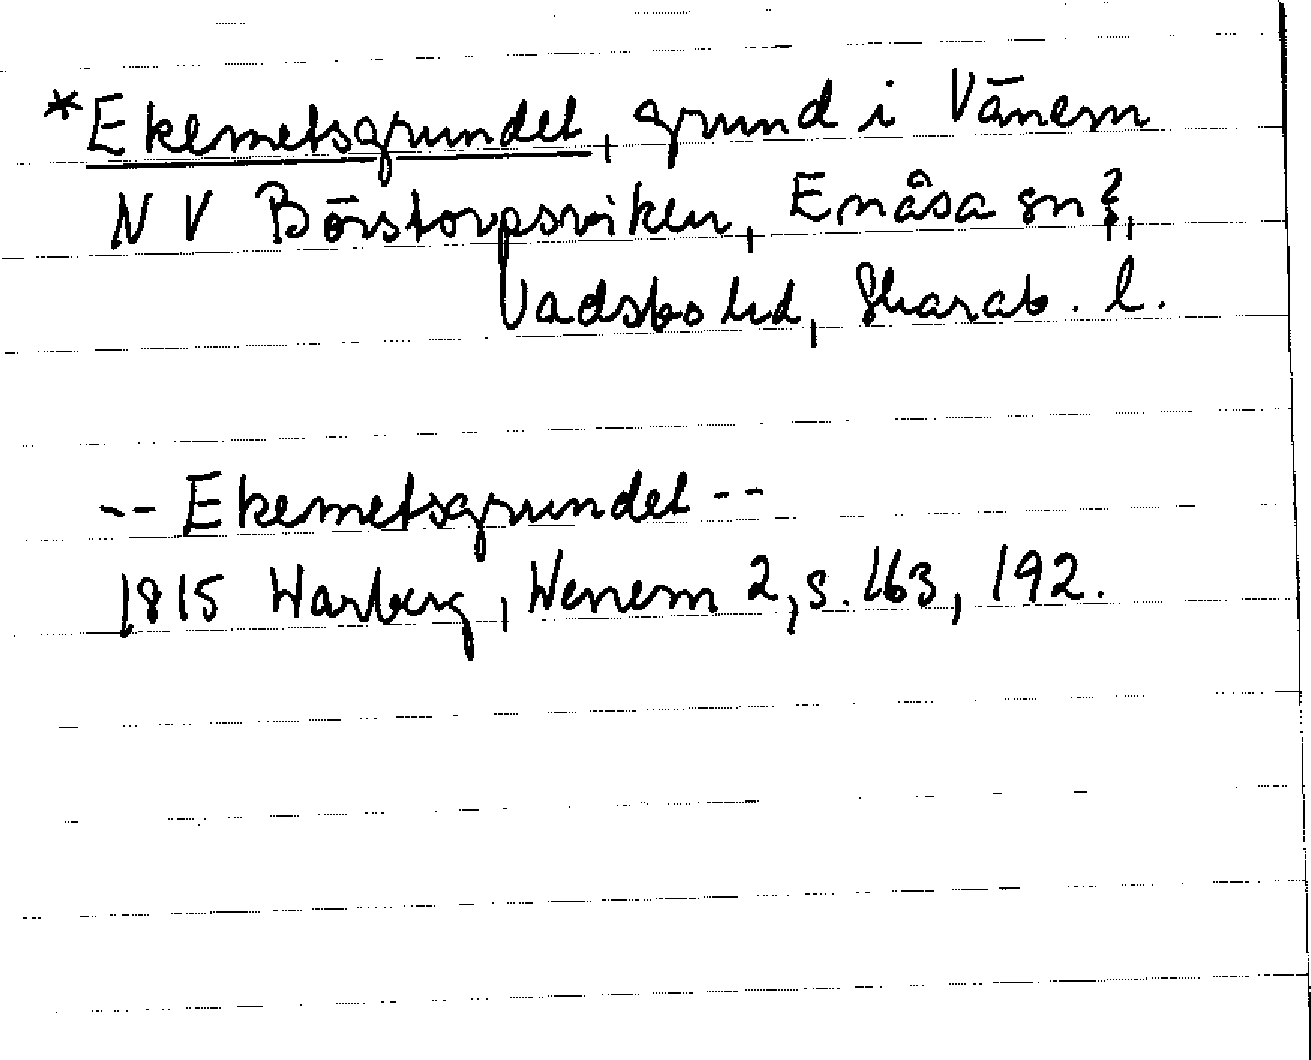 *Ekenetsgrundet, grund i Vänern
NV Börstorpsviken, Enåsa sn?,
Vadsbo hd, Skarab. l.
-- Ekenetsgrundet --
1815 Warberg, Wenern 2, s. 163, 192.